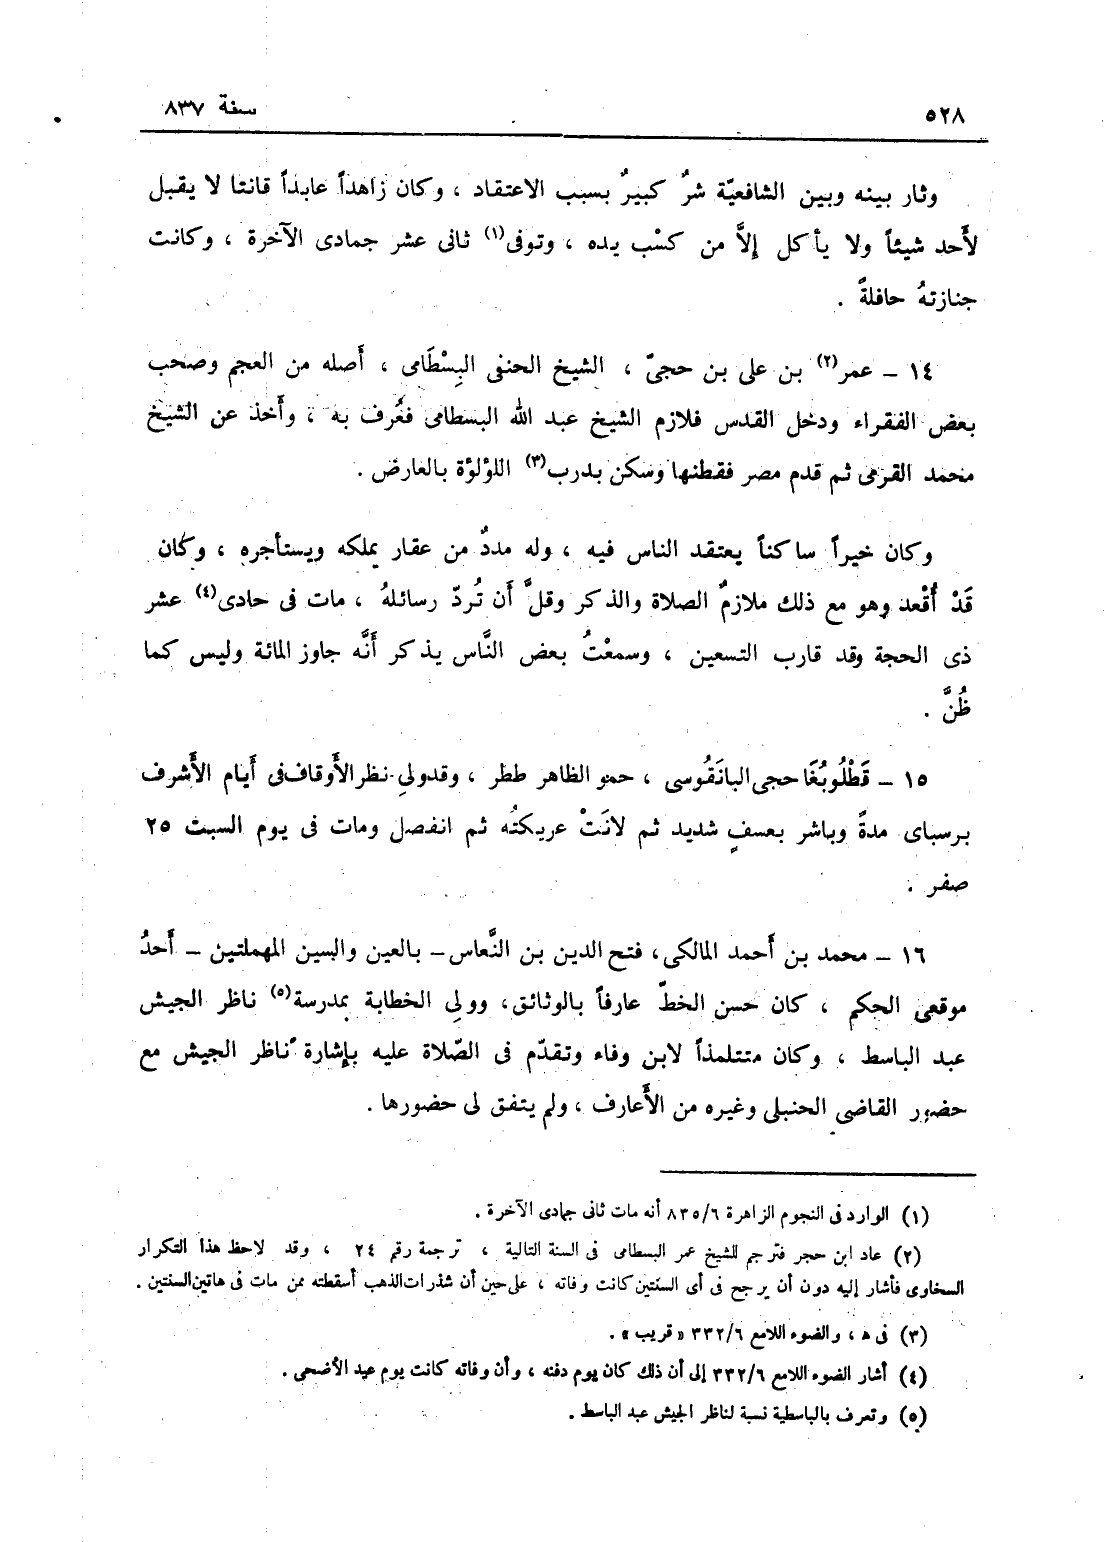 ٥٢٨
سنة ٨٣٧
وثار بينه وبين الشافعيّة شرٌ كبيرٌ بسبب الاعتقاد ، وكان زاهداً عابداً قانتا لا يقبل
لأَحد شيئاً ولا يأكل إلاَّ من كسْب يده ، وتوفى(١) ثانى عشر جمادى الآخرة ، وكانت
جنازتهُ حافلةً .
١٤ – عمر(٢) بن على بن حجىّ ، الشيخ الحنفى البِسْطَامى ، أَصله من العجم وصحب
بعض الفقراء ودخل القدس فلازم الشيخ عبد الله البسطامى فعُرف به ، وأَخذ عن الشيخ
محمد القرمى ثم قدم مصر فقطنها وسكن بدرب(٣) اللؤلؤة بالعارض .
وكان خيراً ساكناً يعتقد الناس فيه ، وله مددٌ من عقار يملكه ويستأجره ، وكان
قَدْ أُقْعد وهو مع ذلك ملازمٌ الصلاة والذكر وقلَّ أَن تُردّ رسائلهُ ، مات فى حادى(٤) عشر
ذى الحجة وقد قارب التسعين ، وسمعْتُ بعض النَّاس يذكر أَنَّه جاوز المائة وليس كما
ظُنَّ .
١٥ – قَطْلُوبُغَا حجى البانَقُوسى ، حمو الظاهر ططر ، وقدولى نظر الأَوقاف فى أَيام الأَشرف
برسباى مدةً وباشر بعسفٍ شديد ثم لانَتْ عريكتُه ثم انفصل ومات فى يوم السبت ٢٥
صفر .
١٦ – محمد بن أَحمد المالكى ، فتح الدين بن النَّعاس – بالعين والسين المهملتين – أَحدُ
موقعى الحكم ، كان حسن الخطّ عارفاً بالوثائق ، وولى الخطابة بمدرسة(٥) ناظر الجيش
عبد الباسط ، وكان متتلمذاً لابن وفاء وتقدّم فى الصّلاة عليه بإشارة ناظر الجيش مع
حضور القاضى الحنبلى وغيره من الأَعارف ، ولم يتفق لى حضورها .
(١) الوارد فى النجوم الزاهرة ٨٣٥/٦ أنه مات ثانى جمادى الآخرة .
(٢) عاد ابن حجر فترجم للشيخ عمر البسطامى فى السنة التالية ، ترجمة رقم ٢٤ ، وقد لاحظ هذا التكرار
السخاوى فأشار إليه دون أن يرجح فى أى السنتين كانت وفاته ، على حين أن شذرات الذهب أسقطته ممن مات فى هاتين السنتين .
(٣) فى ﻫ ، والضوء اللامع ٣٣٢/٦ « قريب » .
(٤) أشار الضوء اللامع ٣٣٢/٦ إلى أن ذلك كان يوم دفنه ، وأن وفاته كانت يوم عيد الأضحى .
(٥) وتعرف بالباسطية نسبة لناظر الجيش عبد الباسط .